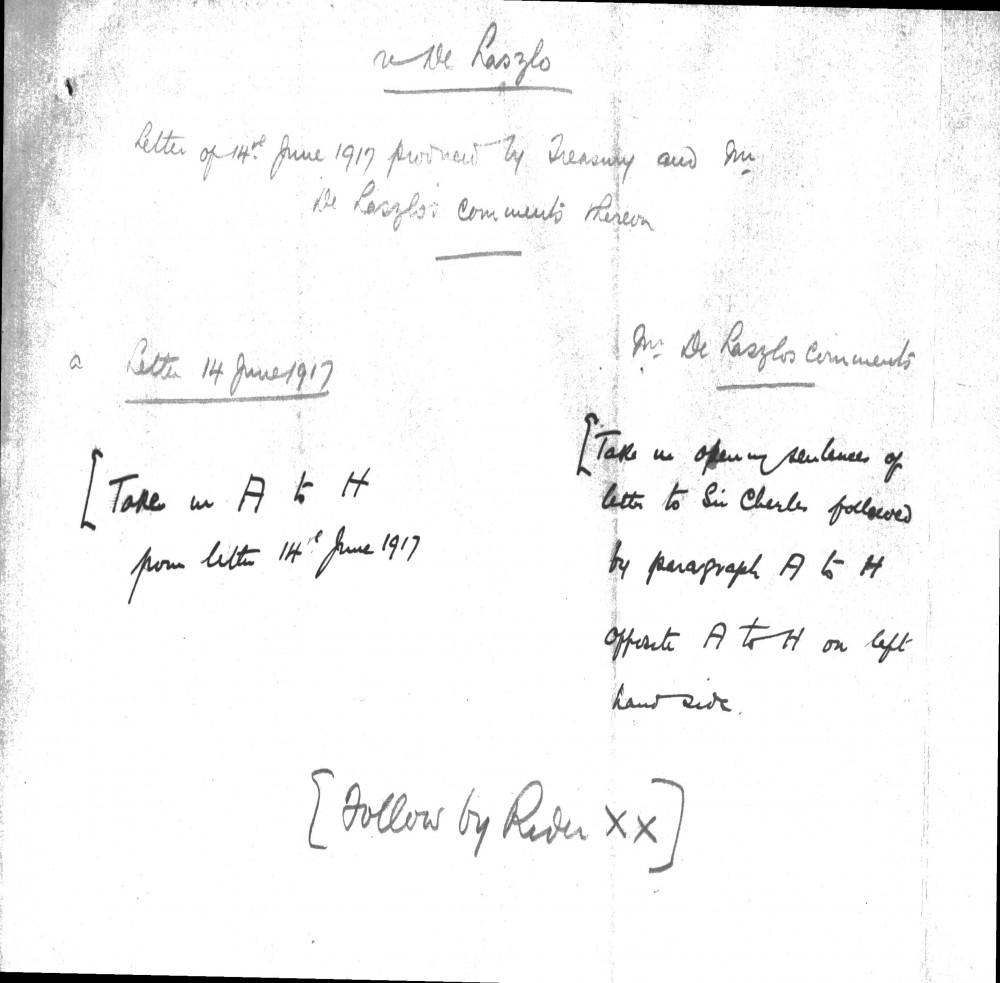 re De Laszlo
Letter of 14th June 1917 produced by Treasury and Mr
De Laszlo's comments thereon
a Letter 14 June 1917
[Take in A to H
from letter 14th June 1917
Mr De Laszlos comments
[Take in opening sentences of
letter to Sir Charles followed
by paragraph A to H
opposite A to H on left
hand side.
[Follow by Rider XX]